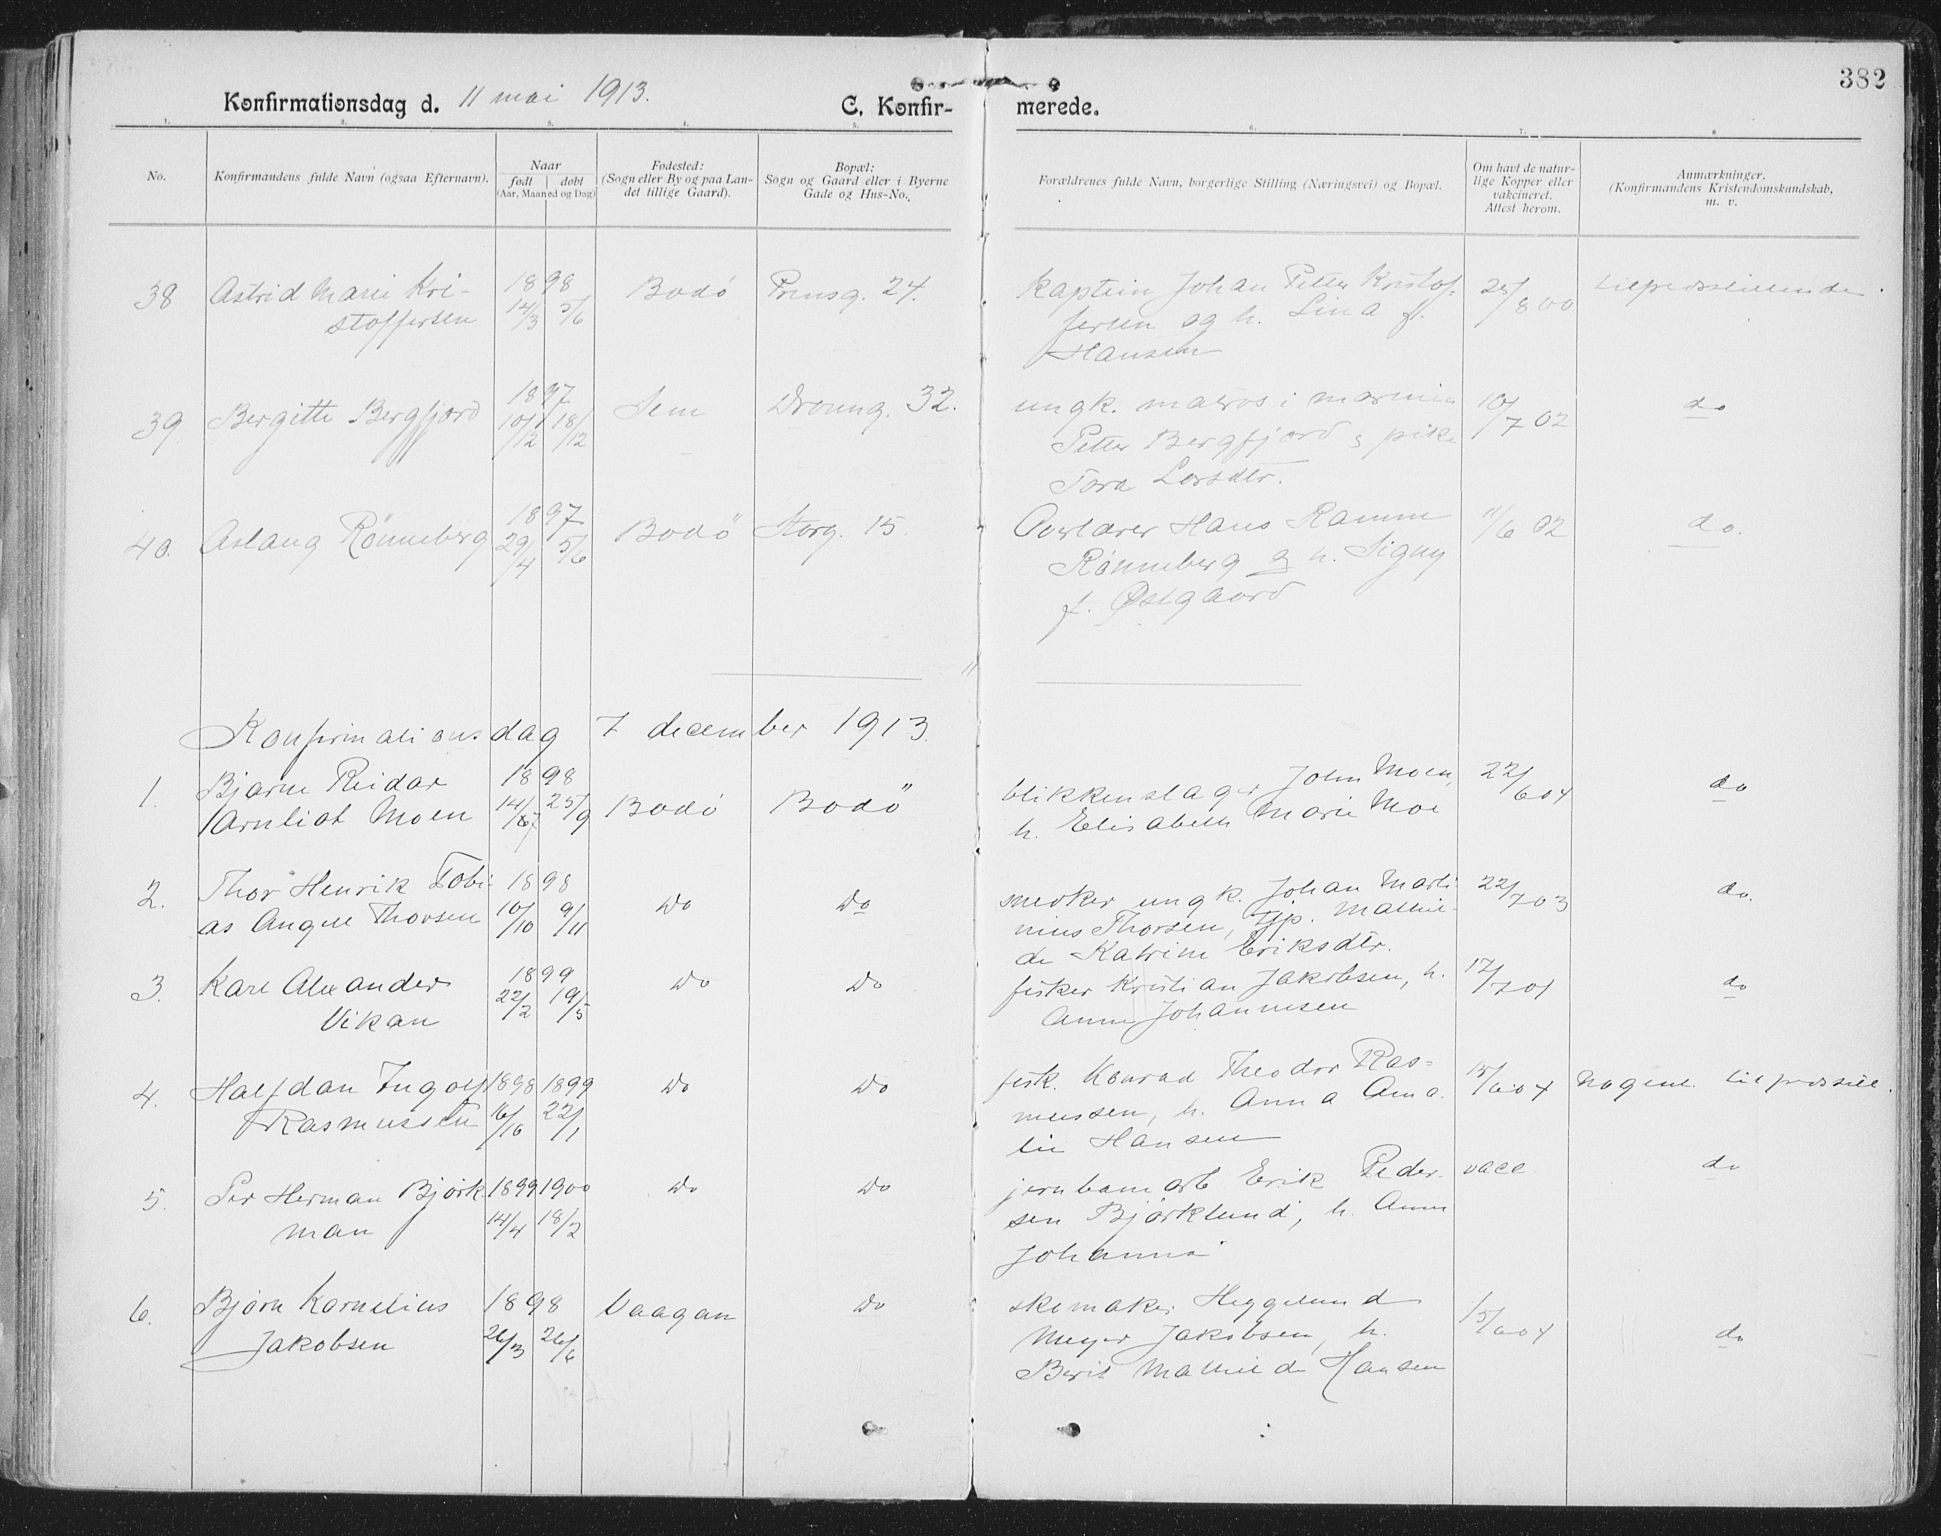 382
Konfirmationsdag d. 11 mai 1913. C. Konfir- merede.
1. 2. 3. 4. 5. 6. 7. 8
No. Konfirmandens fulde Navn (ogsaa Efternavn). Naar født døbt (Aar, Maaned og Dag) Fødested: (Sogn eller By og paa Landet tillige Gaard). Bopæl: Sogn og Gaard eller i Byerne Gade og Hus-No. Forældrenes fulde Navn, borgerlige Stilling (Næringsvei) og Bopæl. Om havt de naturlige Kopper eller vakcineret. Attest herom. Anmærkninger. (Konfirmandens Kristendomskundskab, m. v.
38 Astrid Marie Kri- 1898 Bodö Prinsg. 24. Kaptein Johan Petter Kristof- 25/8 00 tilfredsstillende.
stoffersen 14/3 5/6 fersen og h. Lina f.
Hansen
39 Bergitte Bergfjord 1897 Sem Dronng. 32. ungk. matros i marinen 10/7 02 do
10/12 18/12 Petter Bergfjord & pike
Tora Larsdtr.
40. Aslaug Rönneberg 1897 Bodö Storg. 15. Overlærer Hans Ramm 11/6 02 do.
29/4 5/6 Rönneberg og h. Signy
f. Østgaard
Konfirmationsdag 7 december 1913.
1. Bjarne Reidar 1898 Bodö Bodö blikkenslager John Moen, 22/6 04 do
Arnliot Moen 14/7 25/9 h. Elisabeth Marie Moe
2. Thor Henrik Tobi- 1898 Do Do snedker ungk. Johan Marti- 22/7 03 do.
as Angell Thorsen 10/10 9/11 nius Thorsen, Tjp. Mathil-
de Katrine Eriksdtr.
3. Karl Alexander 1899 Do Do fisker Kristian Jakobsen, h. 17/7 01 do
Vikan 22/2 19/5 Anna Johannesen
4. Halfdan Ingolf 1898 1899 Do Do fisk. Konrad Theodor Ras- 15/6 04 Nogenl. tilfredsstil.
Rasmussen 16/10 22/1 mussen, h. Anna Ama-
lie Hansen
5. Per Herman Björk- 1899 1900 Do Do jernbanearb Erik Peder- vacc do
man 14/4 18/2 sen Björklund, h. Anna
Johanna
6. Björn Kornelius 1898 Vaagan Do skomaker Heggelund 15/6 04 do
Jakobsen 26/3 26/6 Meyer Jakobsen, h.
Berit Mathilde Hansen